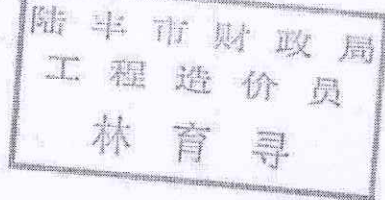 陆丰市财政局
工程造价员
林育寻